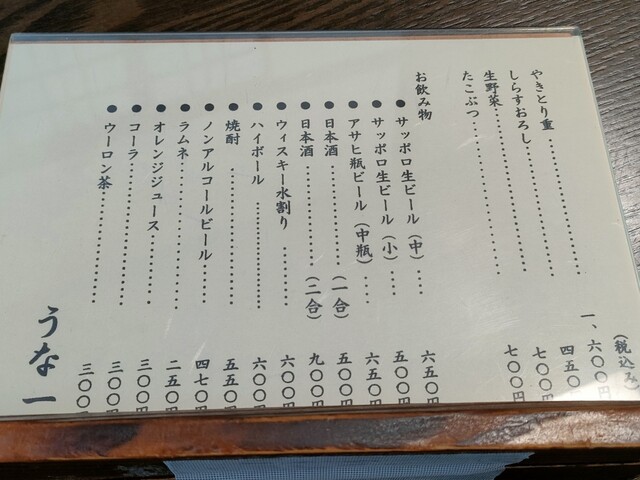 (税込み
やきとり重……………………一、六〇〇円
しらすおろし……………………四五〇
生野菜……………………七〇〇
たこぶつ……………………七〇〇円
お飲み物
●サッポロ生ビール(中)……六五〇円
●サッポロ生ビール(小)……五〇〇円
●アサヒ瓶ビール(中瓶)……六五〇円
●日本酒……………(一合)五〇〇円
●日本酒……………(二合)九〇〇円
●ウィスキー水割り……六〇〇円
●ハイボール……………六〇〇円
●焼酎……………五五〇円
●ノンアルコールビール……四七〇円
●ラムネ……………二五〇円
●オレンジジュース……三〇〇円
●コーラ……………三〇〇円
●ウーロン茶……………三〇〇円
うな一